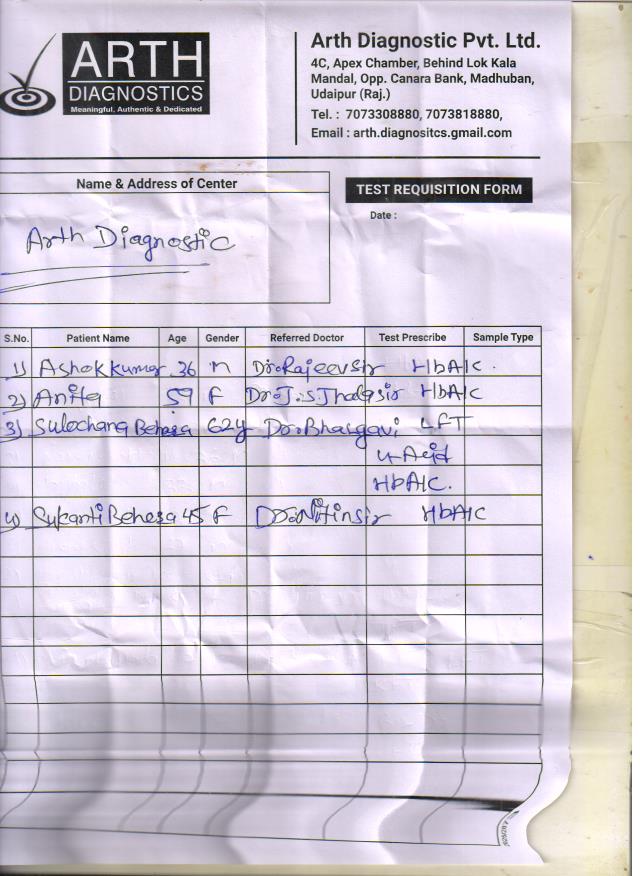 ARTH
DIAGNOSTICS
Meaningful, Authentic & Dedicated
Arth Diagnostic Pvt. Ltd.
4C, Apex Chamber, Behind Lok Kala
Mandal, Opp. Canara Bank, Madhuban,
Udaipur (Raj.)
Tel. : 7073308880, 7073818880,
Email : arth.diagnositcs.gmail.com
Name & Address of Center
TEST REQUISITION FORM
Date :
Arth Diagnostic
S.No. Patient Name Age Gender Referred Doctor Test Prescribe Sample Type
1) Ashok kumar 36 M Dr. Rajeev sir HbA1C.
2) Anita 59 F Dr. J.S. sir HbA1C
3) Sulochana Behera 62y Dr. Bhargavi LFT
U-Acid
HbA1C.
4) Sukanti Behera 45 F Dr. Nitin sir HbA1C